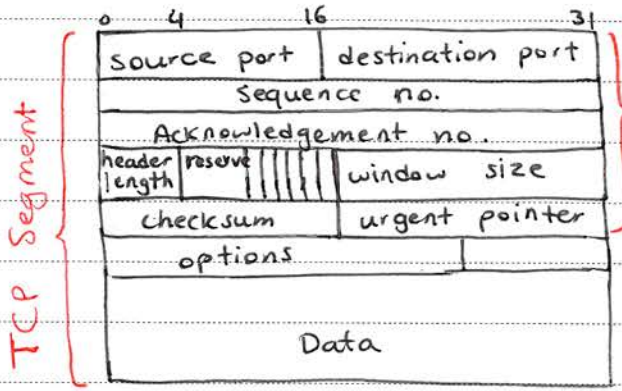 0 4 16 31
source port destination port
Sequence no.
Acknowledgement no.
header length reserve window size
checksum urgent pointer
options
Data
TCP Segment